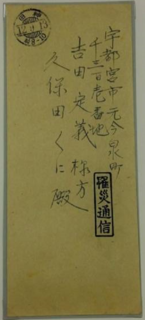 宇都宮市元今泉町
千三百壱番地
吉田定義様方
久保田くに殿
罹災通信